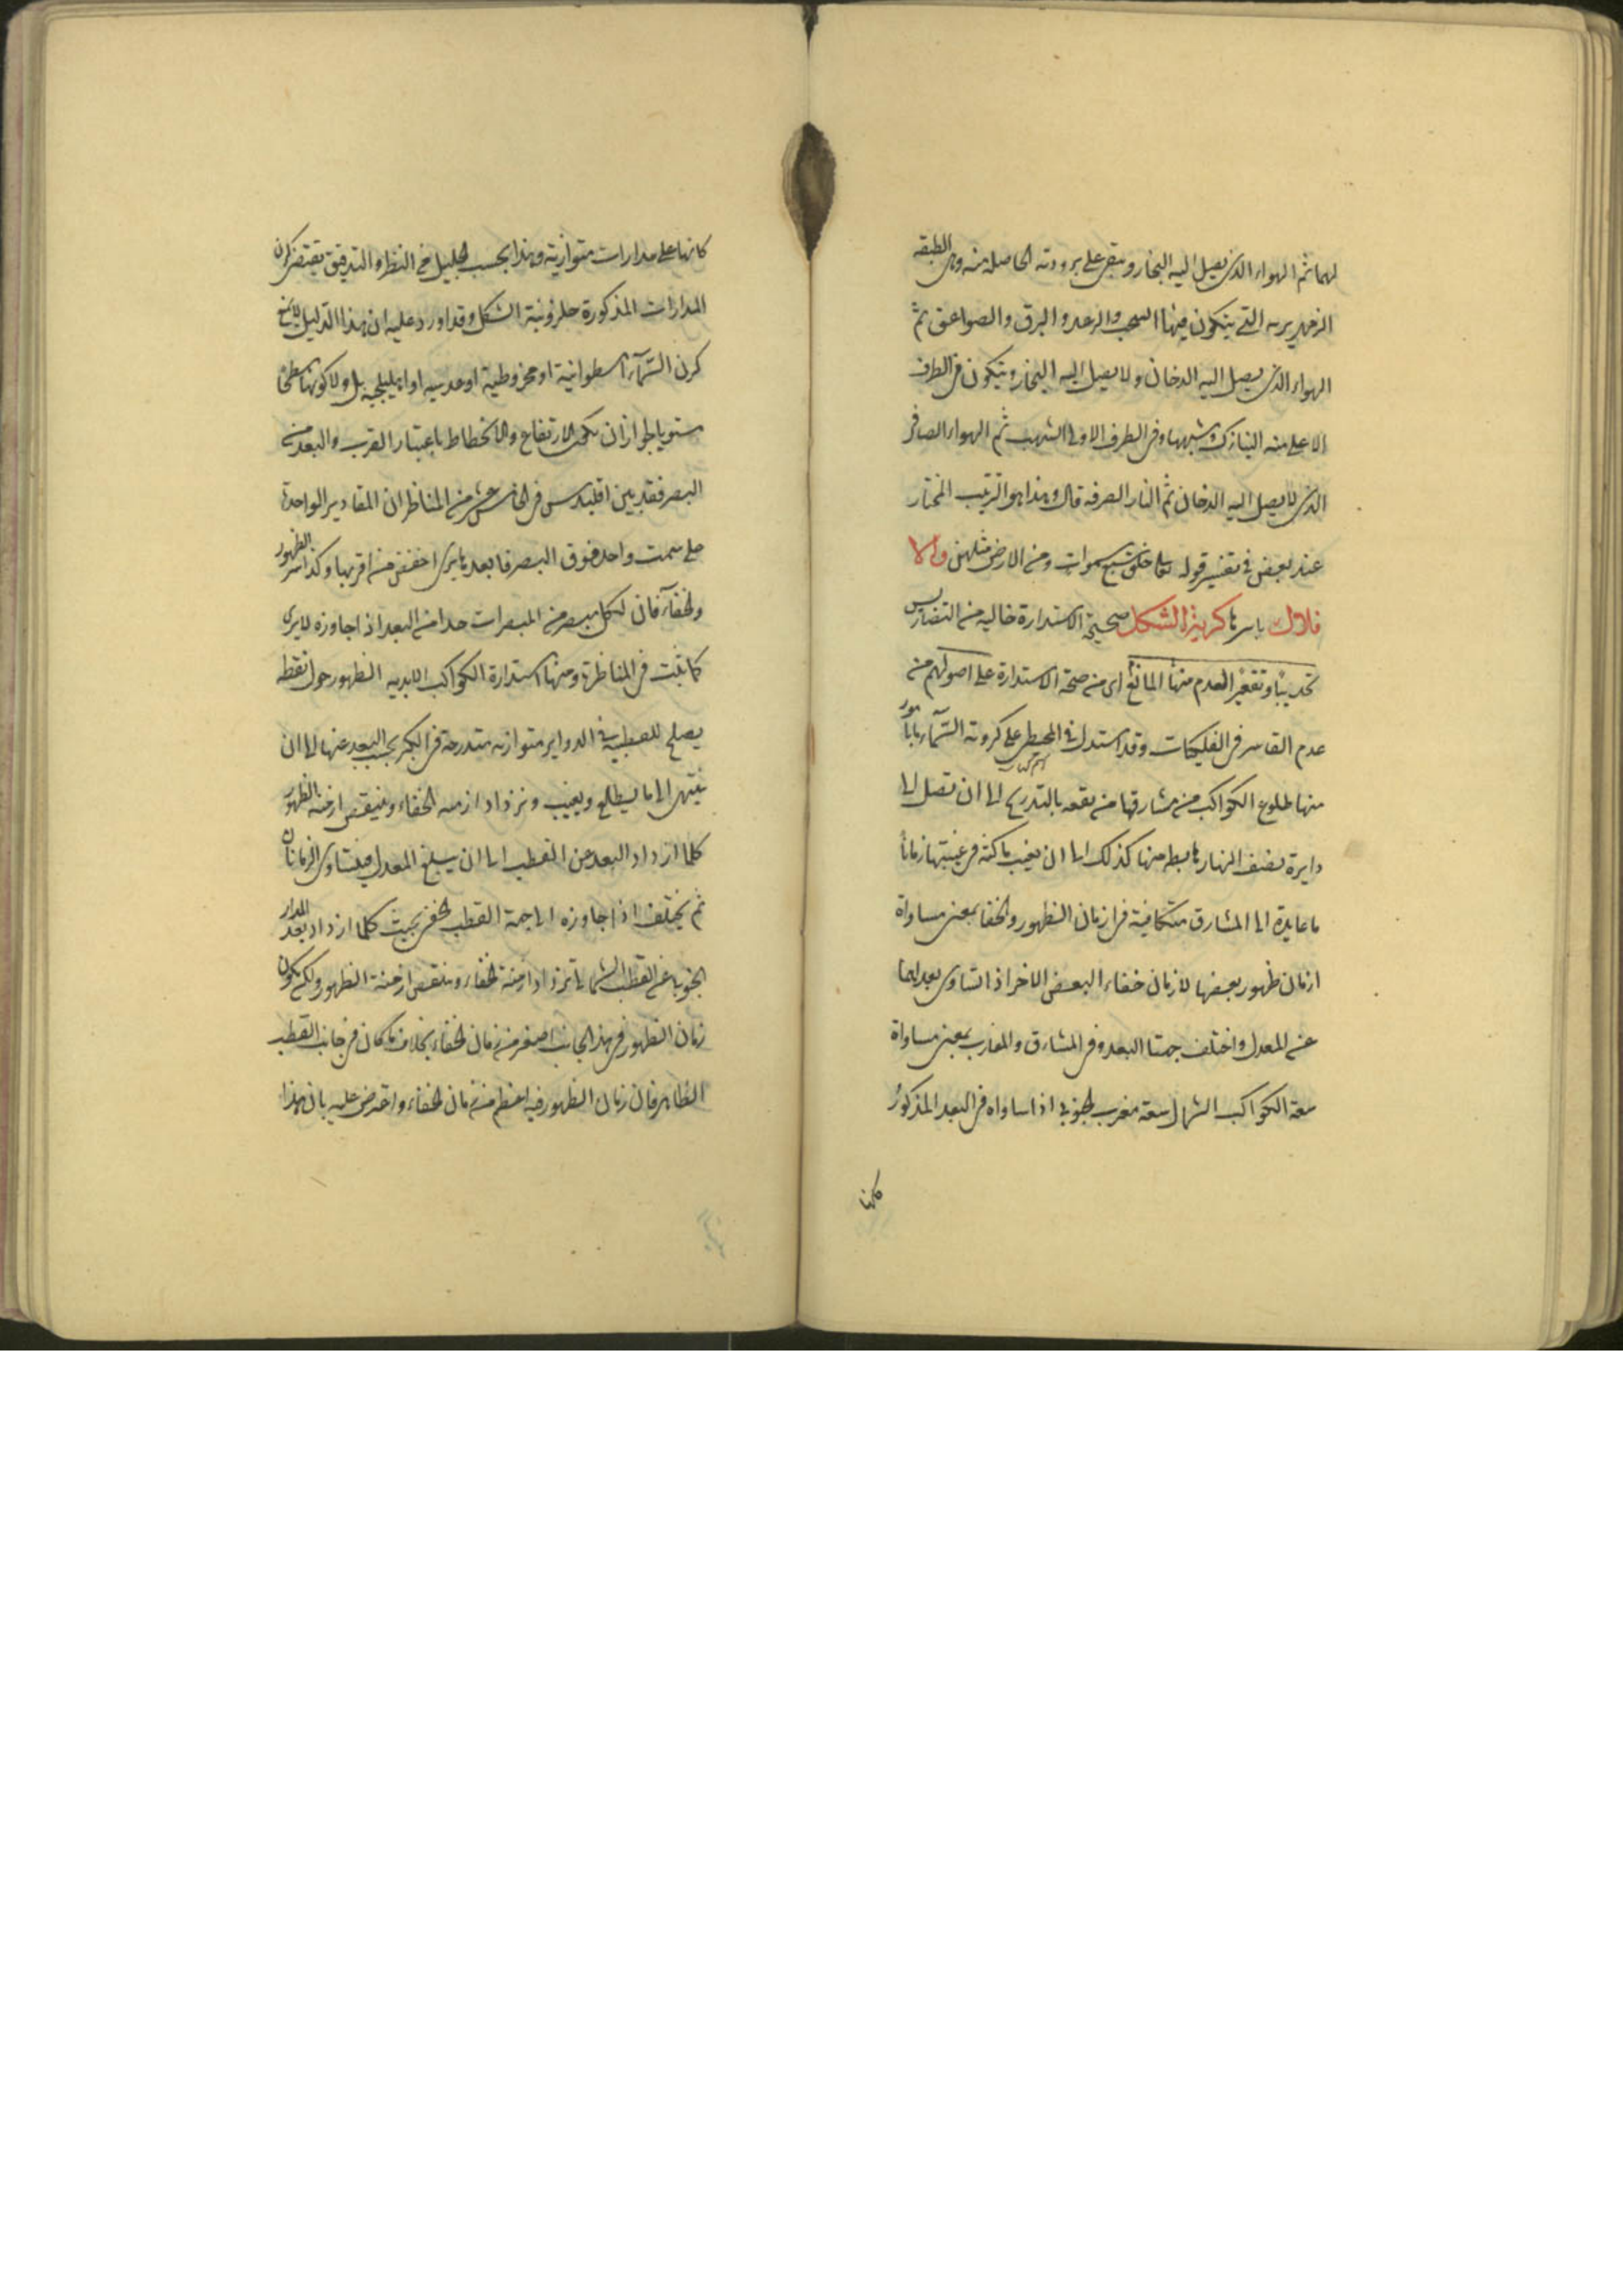 لهما ثم الهواء الذى يصل اليه البخار ويبقى على برودته الحاصلة منه وهى الطبقه
الزمهريريه التى يتكون فيها السحب والرعد والبرق والصواعق ثم
الهواء الذى يصل اليه الدخان ولا يصل اليه البخار ويتكون فى الطرف
الاعلى منه النيازك وشبهها وفى الطرف الادنى الشهب ثم الهواء الصافى
الذى لا يصل اليه الدخان ثم النار الصرفه قال وهذا هو الترتيب المختار
عند بعض فى تفسير قوله تعالى خلق سبع سموات ومن الارض مثلهن والا
فلاك باسرها كرية الشكل صحيحة الاستدارة خاليه من التضاريس
تحديبا وتقعيرا لعدم منها المانع اى من صحة الاستدارة على اصولهم من
عدم القاسر فى الفلكيات وقد استدل فى المجسطى على كروية السماء بامور
منها طلوع الكواكب من مشارقها مرتفعه بالتدريج الى ان تصل الى
دايرة نصف النهار هابطه منها كذلك الى ان يغيب ماكثة فى غيبتها زمانا
ما عايدة الى المشارق متكافية فى ازمان الظهور والخفا بمعنى مساواة
ازمان ظهور بعضها لازمان خفاء البعض الاخر اذا تساوى بعداهما
عن المعدل واختلف جهتا البعد وفى المشارق والمغارب بمعنى مساواة
سعة الكواكب الشمالى سعة مغرب الجنوبى اذا ساواه فى البعد المذكور
كانها على مدارات متوازية وهذا بحسب الجليل من النظر والتدقيق يقتضى كون
المدارات المذكورة حلزونية الشكل وقد اورد عليه ان هذا الدليل لا يمنع
كون السماء اسطوانية او مخروطية او عدسيه او اهليلجيه بل ولا كونها سطحا
مستويا لجواز ان يكون الارتفاع والانحطاط باعتبار القرب والبعد من
البصر فقد بين اقليدس فى الخامس عشر من المناظر ان المقادير الواحدة
على سمت واحد فوق البصر فابعدها يرى اخفض من اقربها وكذا امر الظهور
والخفاء فان لكل مبصر من المبصرات حدا من البعد اذا جاوزه لا يرى
كما ثبت فى المناظر ومنها استدارة الكواكب الابديه الظهور حول نقطه
يصلح للقطبية فى الدواير متوازيه متدرجة فى الكبر بحسب البعد عنها الى ان
ينتهى الى ما يطلع ويغيب ويزداد ازمنه الخفاء وينقص ازمنه الظهور
كلما ازداد البعد عن القطب الى ان يبلغ المعدل فيتساوى الزمانان
ثم يختلف اذا جاوزه الى جهة القطب الخفى بحيث كلما ازداد بعد المدار
الجنوبى عن القطب الشمالى تزداد ازمنة الخفاء وينقص ازمنة الظهور ولكن يكون
زمان الظهور فى هذا الجانب اصغر من زمان الخفاء بخلاف ما كان فى جانب القطب
الظاهر فان زمان الظهور فيه اعظم من زمان الخفاء واعترض عليه بان هذا